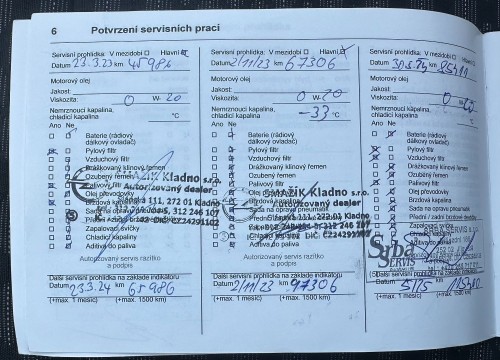 6 Potvrzení servisních prací
Servisní prohlídka: V mezidobí Hlavní
Datum 23.3.23 km 45986
Motorový olej
Jakost:
Viskozita: 0 W- 20
Nemrznoucí kapalina,
chladicí kapalina °C
Ano Ne
Baterie (rádiový
dálkový ovladač)
Pylový filtr
Vzduchový filtr
Drážkovaný klínový řemen
Ozubený řemen
Palivový filtr
Olej převodovky
Brzdová kapalina
Sada na opravu pneumatik
Zapalovací svíčky
Chladicí kapaliny
Aditiva do paliva
SMAŽÍK Kladno s.r.o.
Autorizovaný dealer
111, 272 01 Kladno
312 246 107
Autorizovaný servis razítko
a podpis
Další servisní prohlídka na základě indikátoru
Datum 23.3.24 km 65986
(+max. 1 měsíc) (+max. 1500 km)
Servisní prohlídka: V mezidobí Hlavní
Datum 2/11/23 km 67306
Motorový olej
Jakost:
Viskozita: 0 W- 20
Nemrznoucí kapalina,
chladicí kapalina -33 °C
Ano Ne
Baterie (rádiový
dálkový ovladač)
Pylový filtr
Vzduchový filtr
Drážkovaný klínový řemen
Ozubený řemen
Palivový filtr
SMAŽÍK Kladno s.r.o.
Autorizovaný dealer
111, 272 01 Kladno
Aditiva do paliva
Autorizovaný servis razítko
a podpis
Další servisní prohlídka na základě indikátoru
Datum 2/11/23 km 97306
(+max. 1 měsíc) (+max. 1500 km)
Servisní prohlídka: V mezidobí Hlavní
Datum km
Motorový olej
Jakost:
Viskozita: 0 W-
Nemrznoucí kapalina,
chladicí kapalina °C
Ano Ne
Baterie (rádiový
dálkový ovladač)
Pylový filtr
Vzduchový filtr
Drážkovaný klínový řemen
Ozubený řemen
Palivový filtr
Olej převodovky
Brzdová kapalina
Sada na opravu pneumatik
Přední / zadní brzdové destičky
Zapalovací svíčky
Chladicí kapaliny
Aditiva do paliva
Srba
SERVIS
Další servisní prohlídka na základě indikátoru
Datum km
(+max. 1 měsíc) (+max. 1500 km)